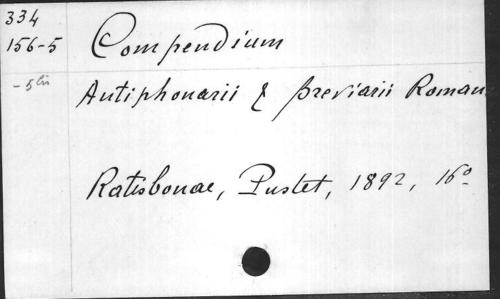 334
156-5
- 5 bis
Compendium
Antiphonarii & Breviarii Roman
Ratisbonae, Pustet, 1892, 16º